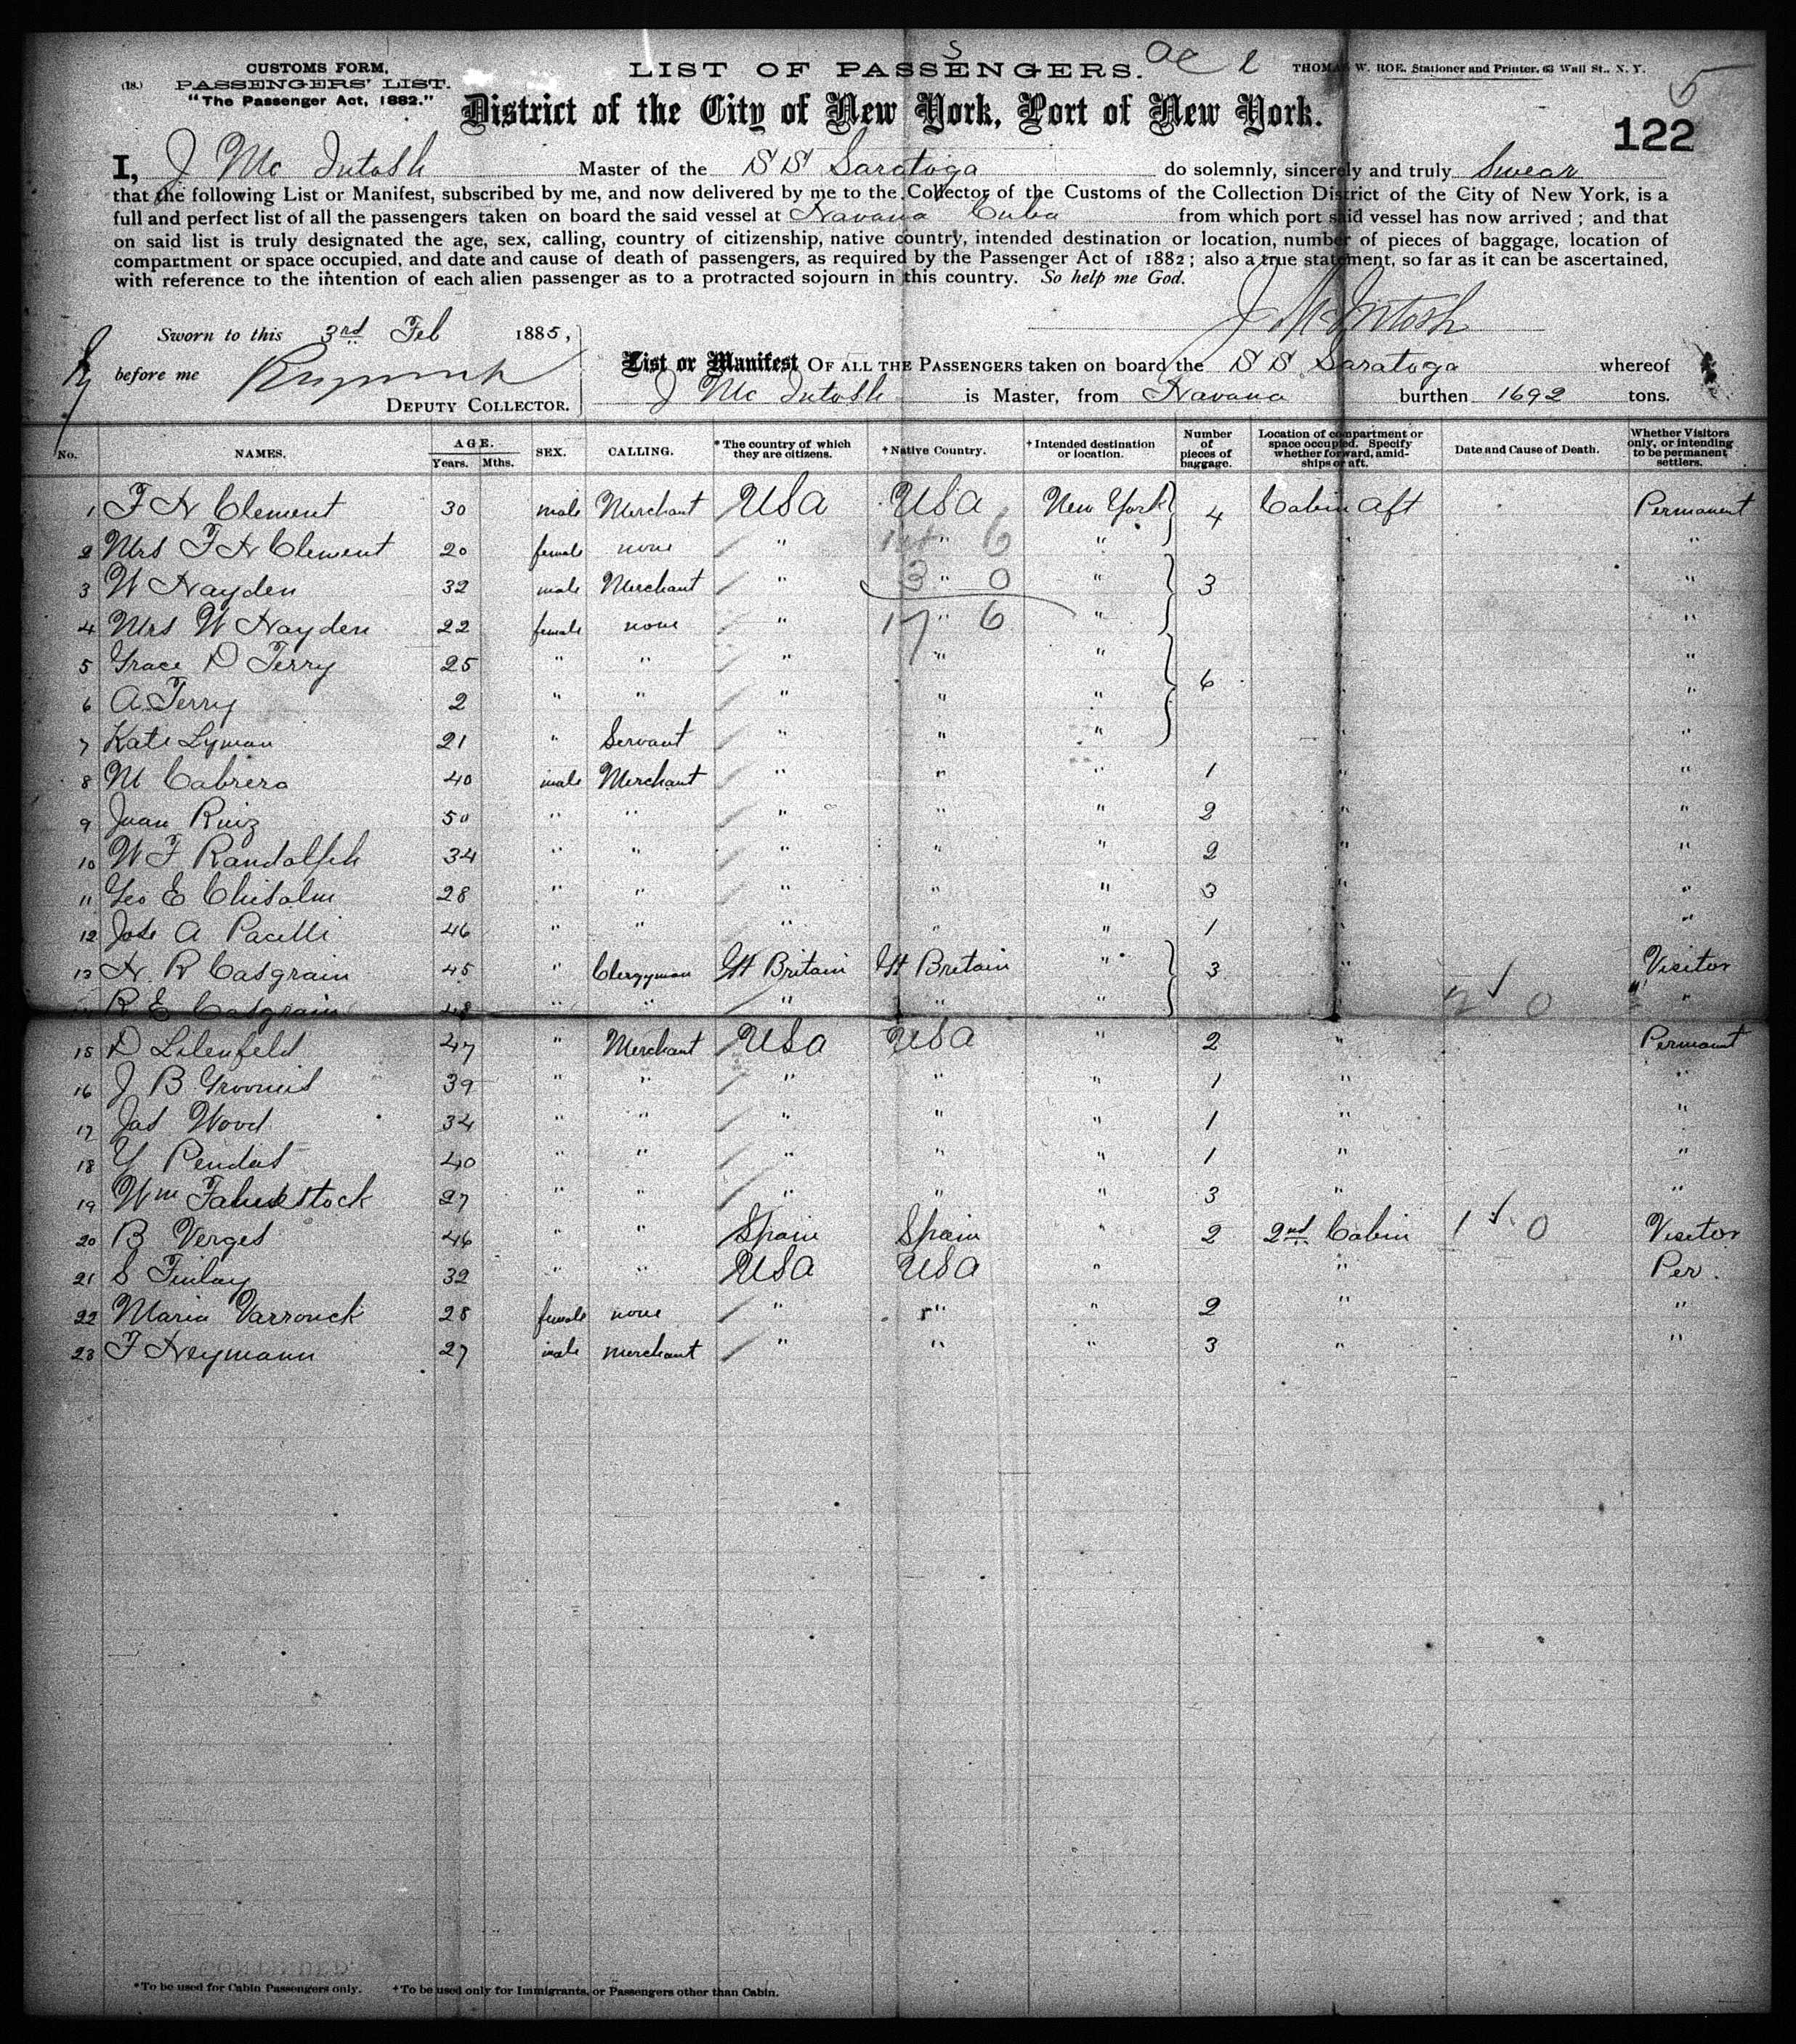 CUSTOMS FORM,
(18.) PASSENGERS' LIST.
"The Passenger Act, 1882."
LIST OF PASSENGERS.
THOMAS W. ROE, Stationer and Printer, 63 Wall St., N. Y.
District of the City of New York, Port of New York.
122
I, J Mc Intosh Master of the SS Saratoga do solemnly, sincerely and truly Swear
that the following List or Manifest, subscribed by me, and now delivered by me to the Collector of the Customs of the Collection District of the City of New York, is a
full and perfect list of all the passengers taken on board the said vessel at Havana Cuba from which port said vessel has now arrived; and that
on said list is truly designated the age, sex, calling, country of citizenship, native country, intended destination or location, number of pieces of baggage, location of
compartment or space occupied, and date and cause of death of passengers, as required by the Passenger Act of 1882; also a true statement, so far as it can be ascertained,
with reference to the intention of each alien passenger as to a protracted sojourn in this country. So help me God.
J McIntosh
Sworn to this 3rd Feb 1885,
before me
DEPUTY COLLECTOR.
List or Manifest OF ALL THE PASSENGERS taken on board the SS Saratoga whereof
J Mc Intosh is Master, from Havana burthen 1692 tons.
No. NAMES. AGE. Years. Mths. SEX. CALLING. *The country of which they are citizens. †Native Country. †Intended destination or location. Number of pieces of baggage. Location of compartment or space occupied. Specify whether forward, amidships or aft. Date and Cause of Death. Whether Visitors only, or intending to be permanent settlers.
1 F H Clement 30 male Merchant USA USA New York 4 Cabin Aft Permanent
2 Mrs F H Clement 20 female none " " " " "
3 W Hayden 32 male Merchant " " " 3 " "
4 Mrs W Hayden 22 female none " " " " "
5 Grace D Terry 25 " " " " " " "
6 A Terry 2 " " " " " 6 " "
7 Kate Lyman 21 " Servant " " " " "
8 M Cabrera 40 male Merchant " " " 1 " "
9 Juan Ruiz 50 " " " " " 2 " "
10 W F Randolph 34 " " " " " 2 " "
11 Geo E Chisolm 28 " " " " " 3 " "
12 Jose A Pacelli 46 " " " " " 1 " "
13 H R Casgrain 45 " Clergyman Gt Britain Gt Britain " 3 " Visitor
R E Casgrain " " " " " "
15 D Lilenfeld 47 " Merchant USA USA " 2 " Permanent
16 J B 39 " " " " " 1 " "
17 Jas Wood 34 " " " " " 1 " "
18 Y Pendas 40 " " " " " 1 " "
19 Wm Fahnestock 27 " " " " " 3 " "
20 B Verges 46 " " Spain Spain " 2 2nd Cabin 1 0 Visitor
21 S Finlay 32 " " USA USA " " Per.
22 Maria Varronck 28 female none " " " 2 " "
23 F Heymann 27 male merchant " " " 3 " "
*To be used for Cabin Passengers only. †To be used only for Immigrants, or Passengers other than Cabin.